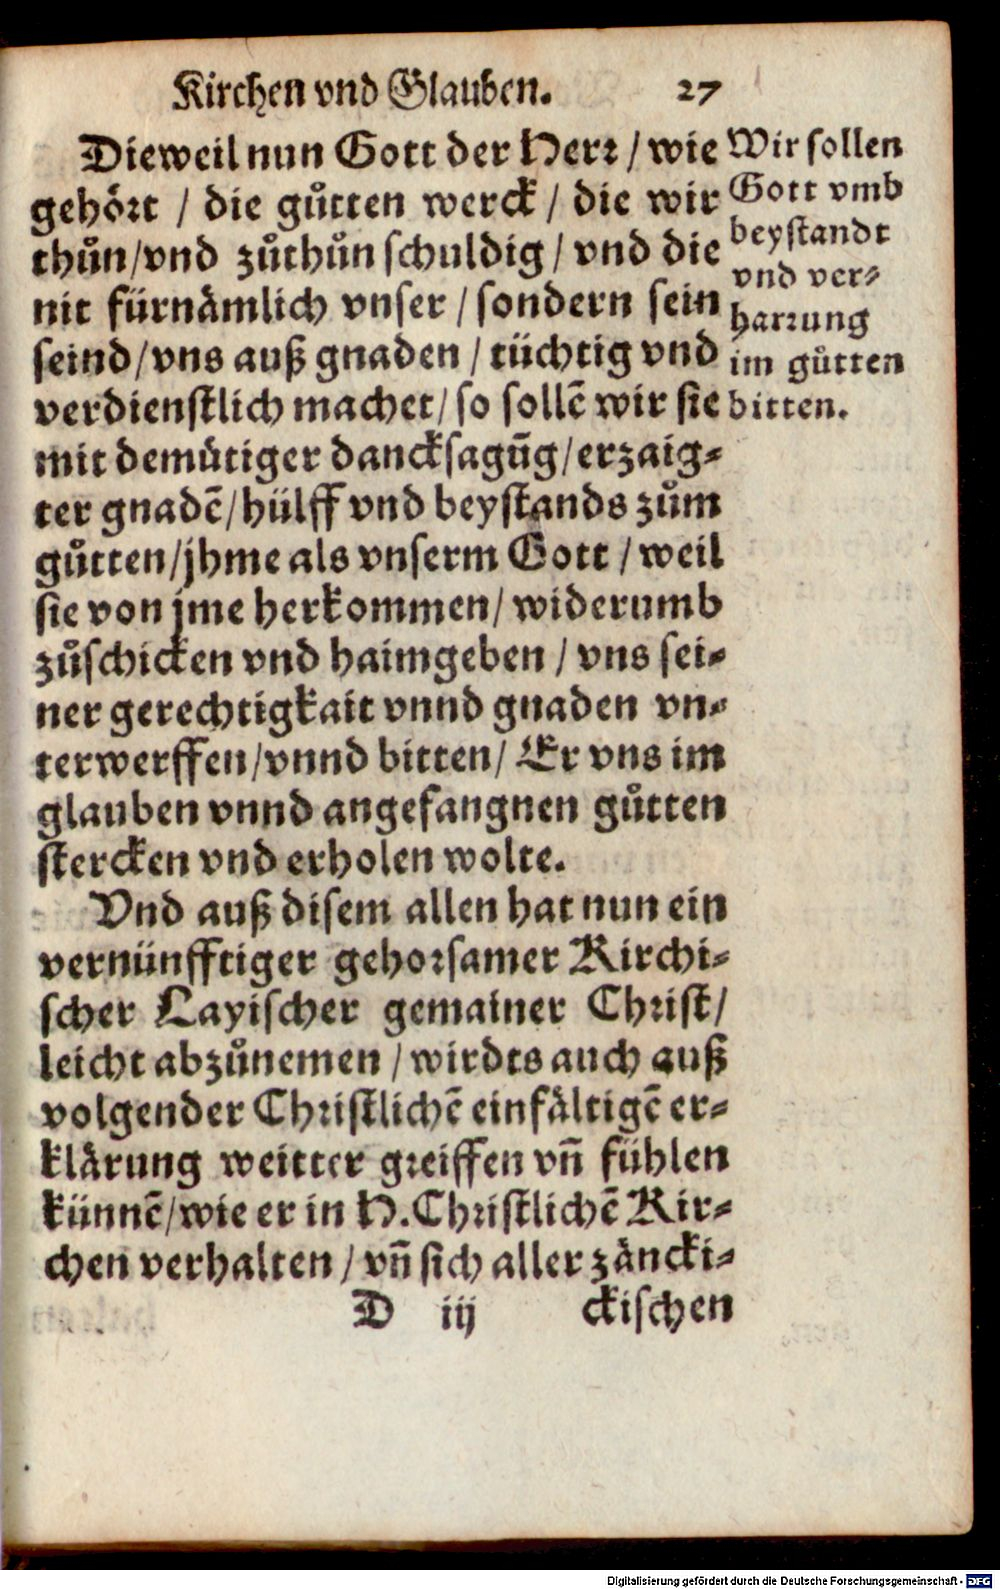 Kirchen vnd Glauben. 27
Dieweil nun Gott der Herꝛ / wie
gehöꝛt / die gůtten werck / die wir
thůn/vnd zůthůn schuldig / vnd die
nit fürnämlich vnser / sondern sein
seind/vns auß gnaden / tüchtig vnd
verdienstlich machet/ so sollẽ wir sie
mit demütiger dancksagũg/erzaig⸗
ter gnadẽ/hülff vnd beystands zům
gůtten/jhme als vnserm Gott / weil
sie von jme herkommen/ widerumb
zůschicken vnd haimgeben / vns sei⸗
ner gerechtigkait vnnd gnaden vn⸗
terwerffen/vnnd bitten/ Er vns im
glauben vnnd angefangnen gůtten
stercken vnd erholen wolte.
Vnd auß disem allen hat nun ein
vernünfftiger gehoꝛsamer Kirchi⸗
scher Layischer gemainer Chꝛist/
leicht abzůnemen / wirdts auch auß
volgender Chꝛistlichẽ einfältigẽ er⸗
klärung weitter gꝛeiffen vñ fühlen
künnẽ/wie er in H.Chꝛistlichẽ Kir⸗
chen verhalten / vñ sich aller zäncki⸗
D iij ckischen
Wir sollen
Gott vmb
beystandt
vnd ver⸗
harꝛung
im gůtten
bitten.
Digitalisierung gefördert durch die Deutsche Forschungsgemeinschaft - DFG